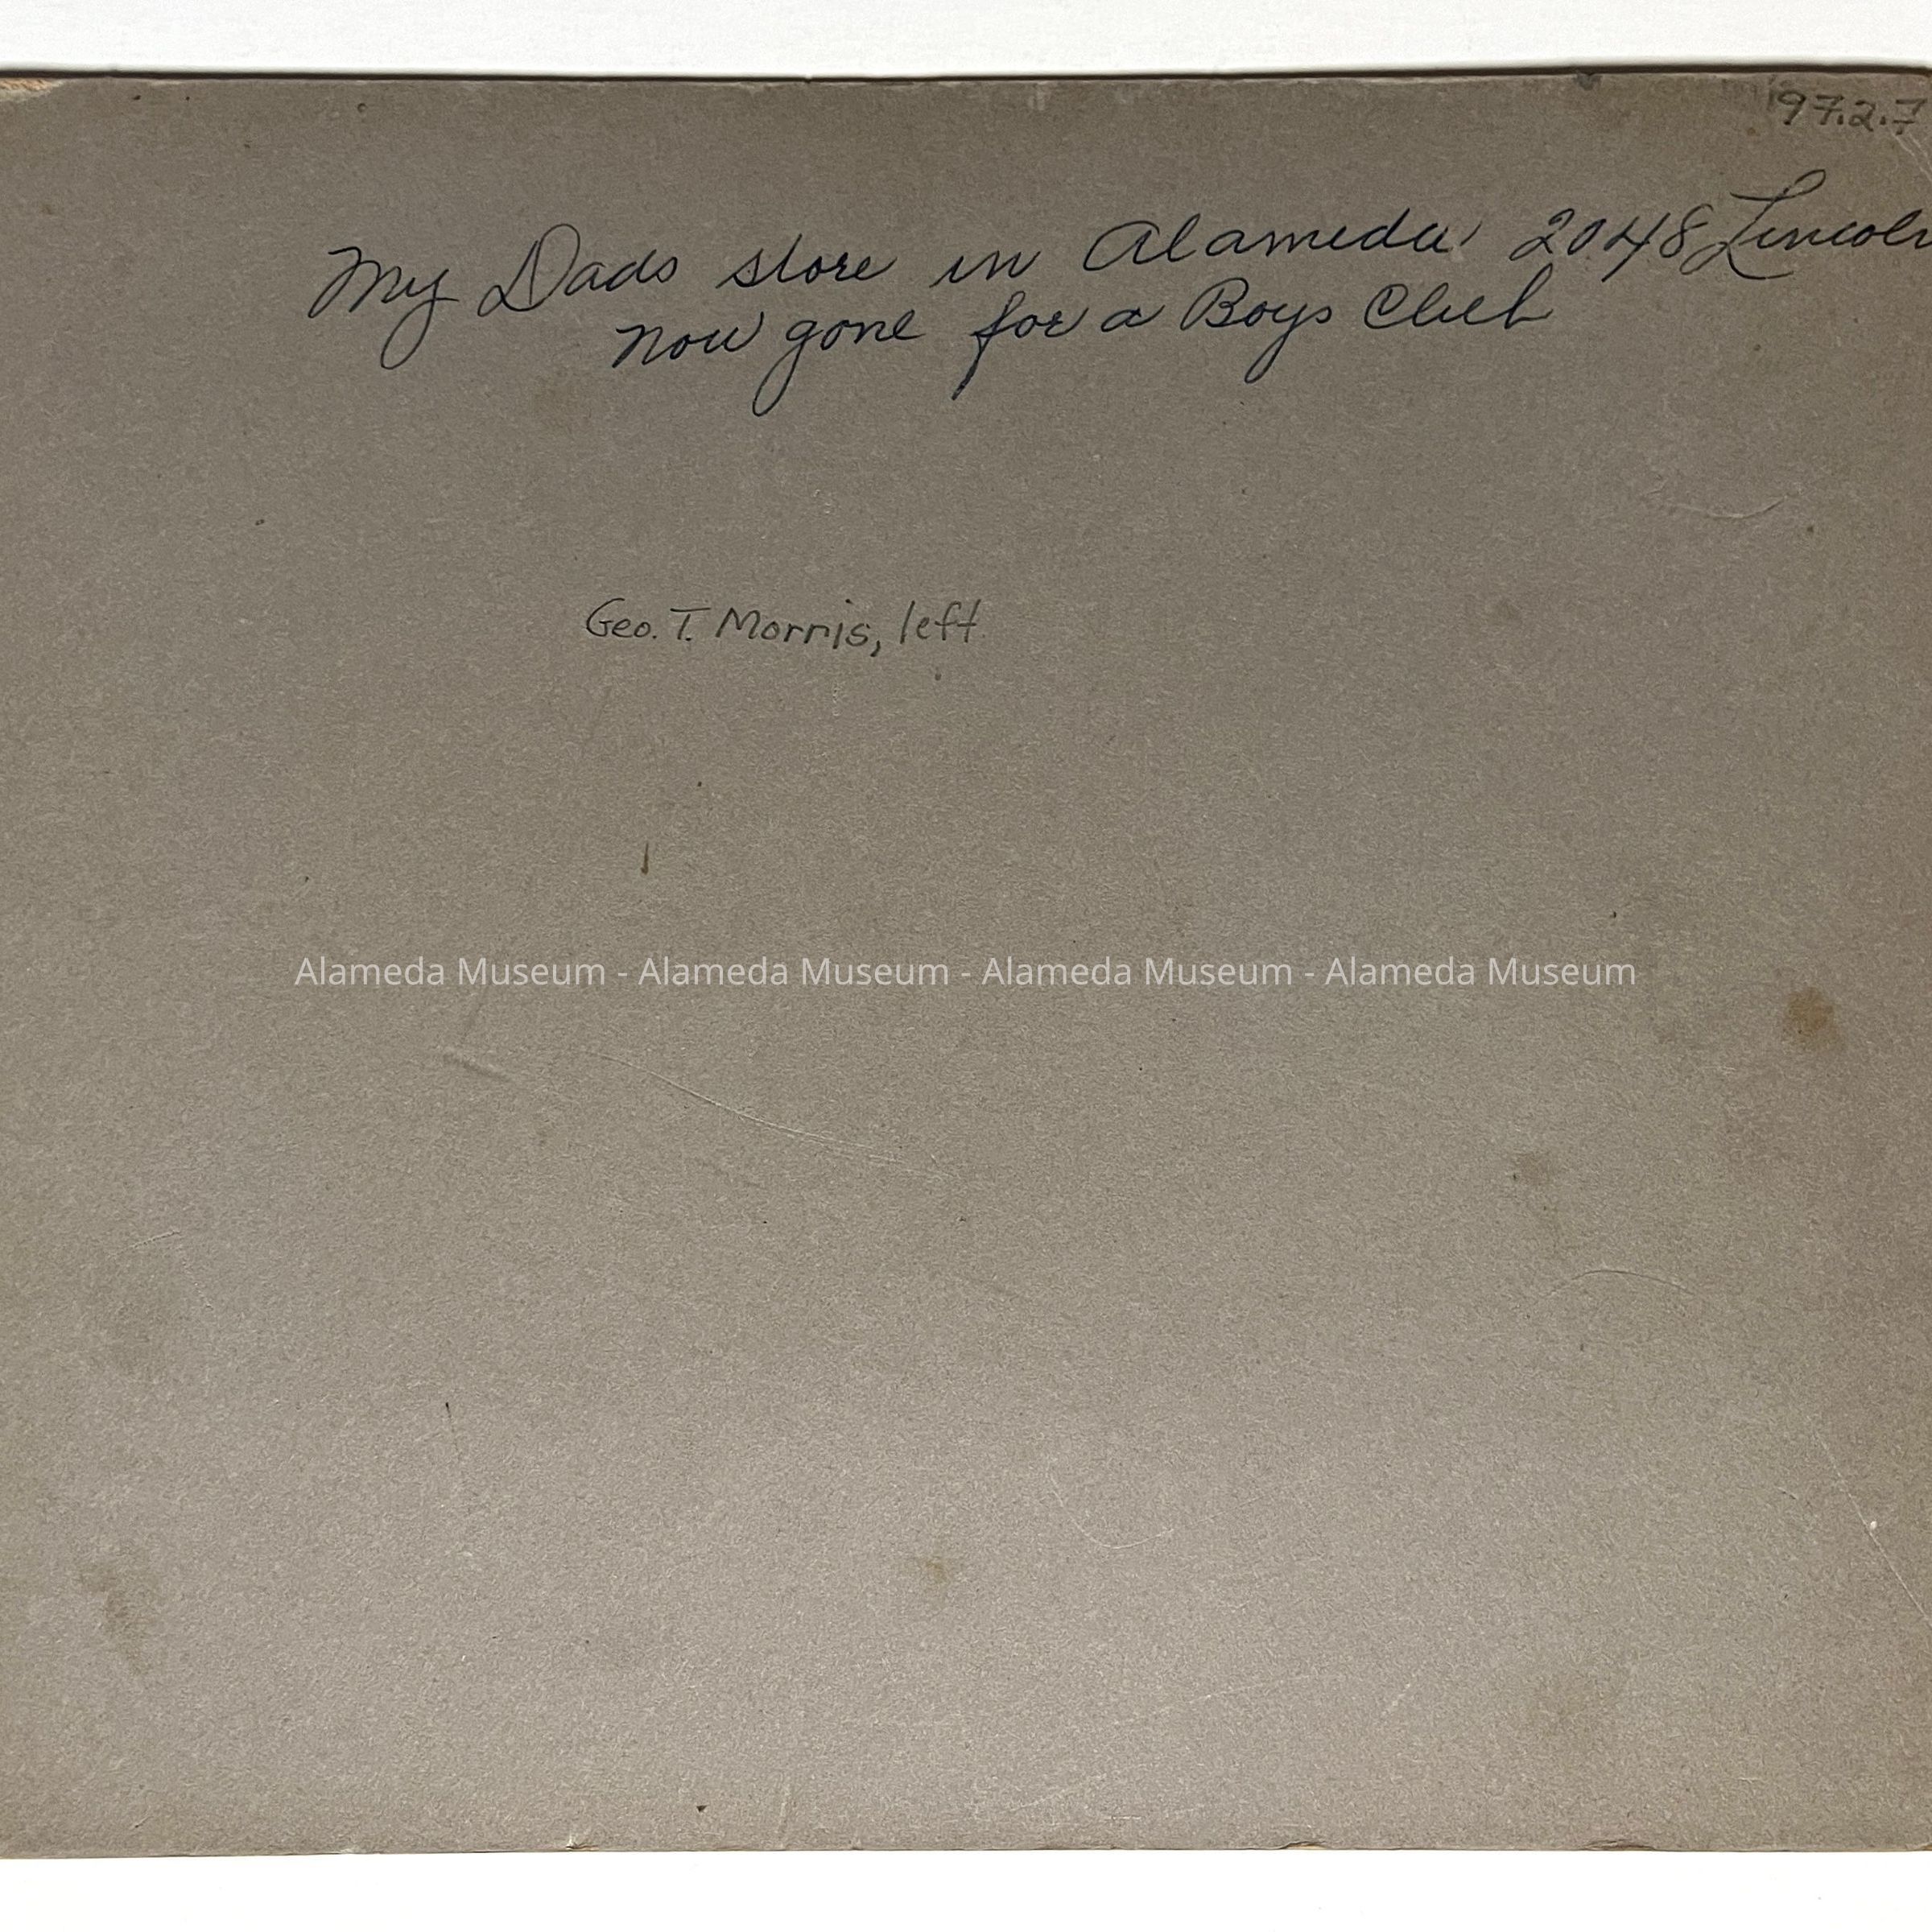 97.2.7
My Dads store in Alameda, 2048 Lincoln
now gone for a Boys Club
Geo. T. Morris, left
Alameda Museum - Alameda Museum - Alameda Museum - Alameda Museum